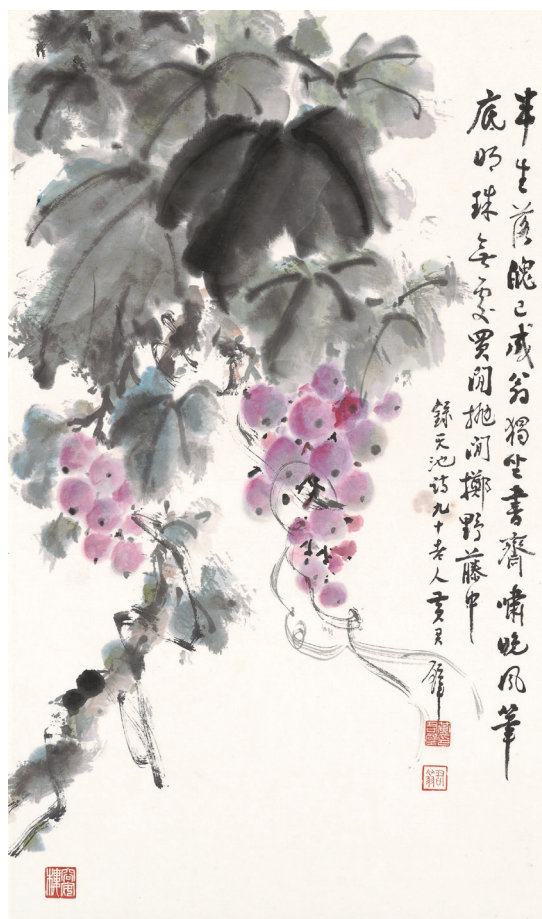 半生落魄已成翁獨坐書齋嘯晚風筆
底明珠無處買閒拋閒擲野藤中
錄天池詩九十老人黃君璧